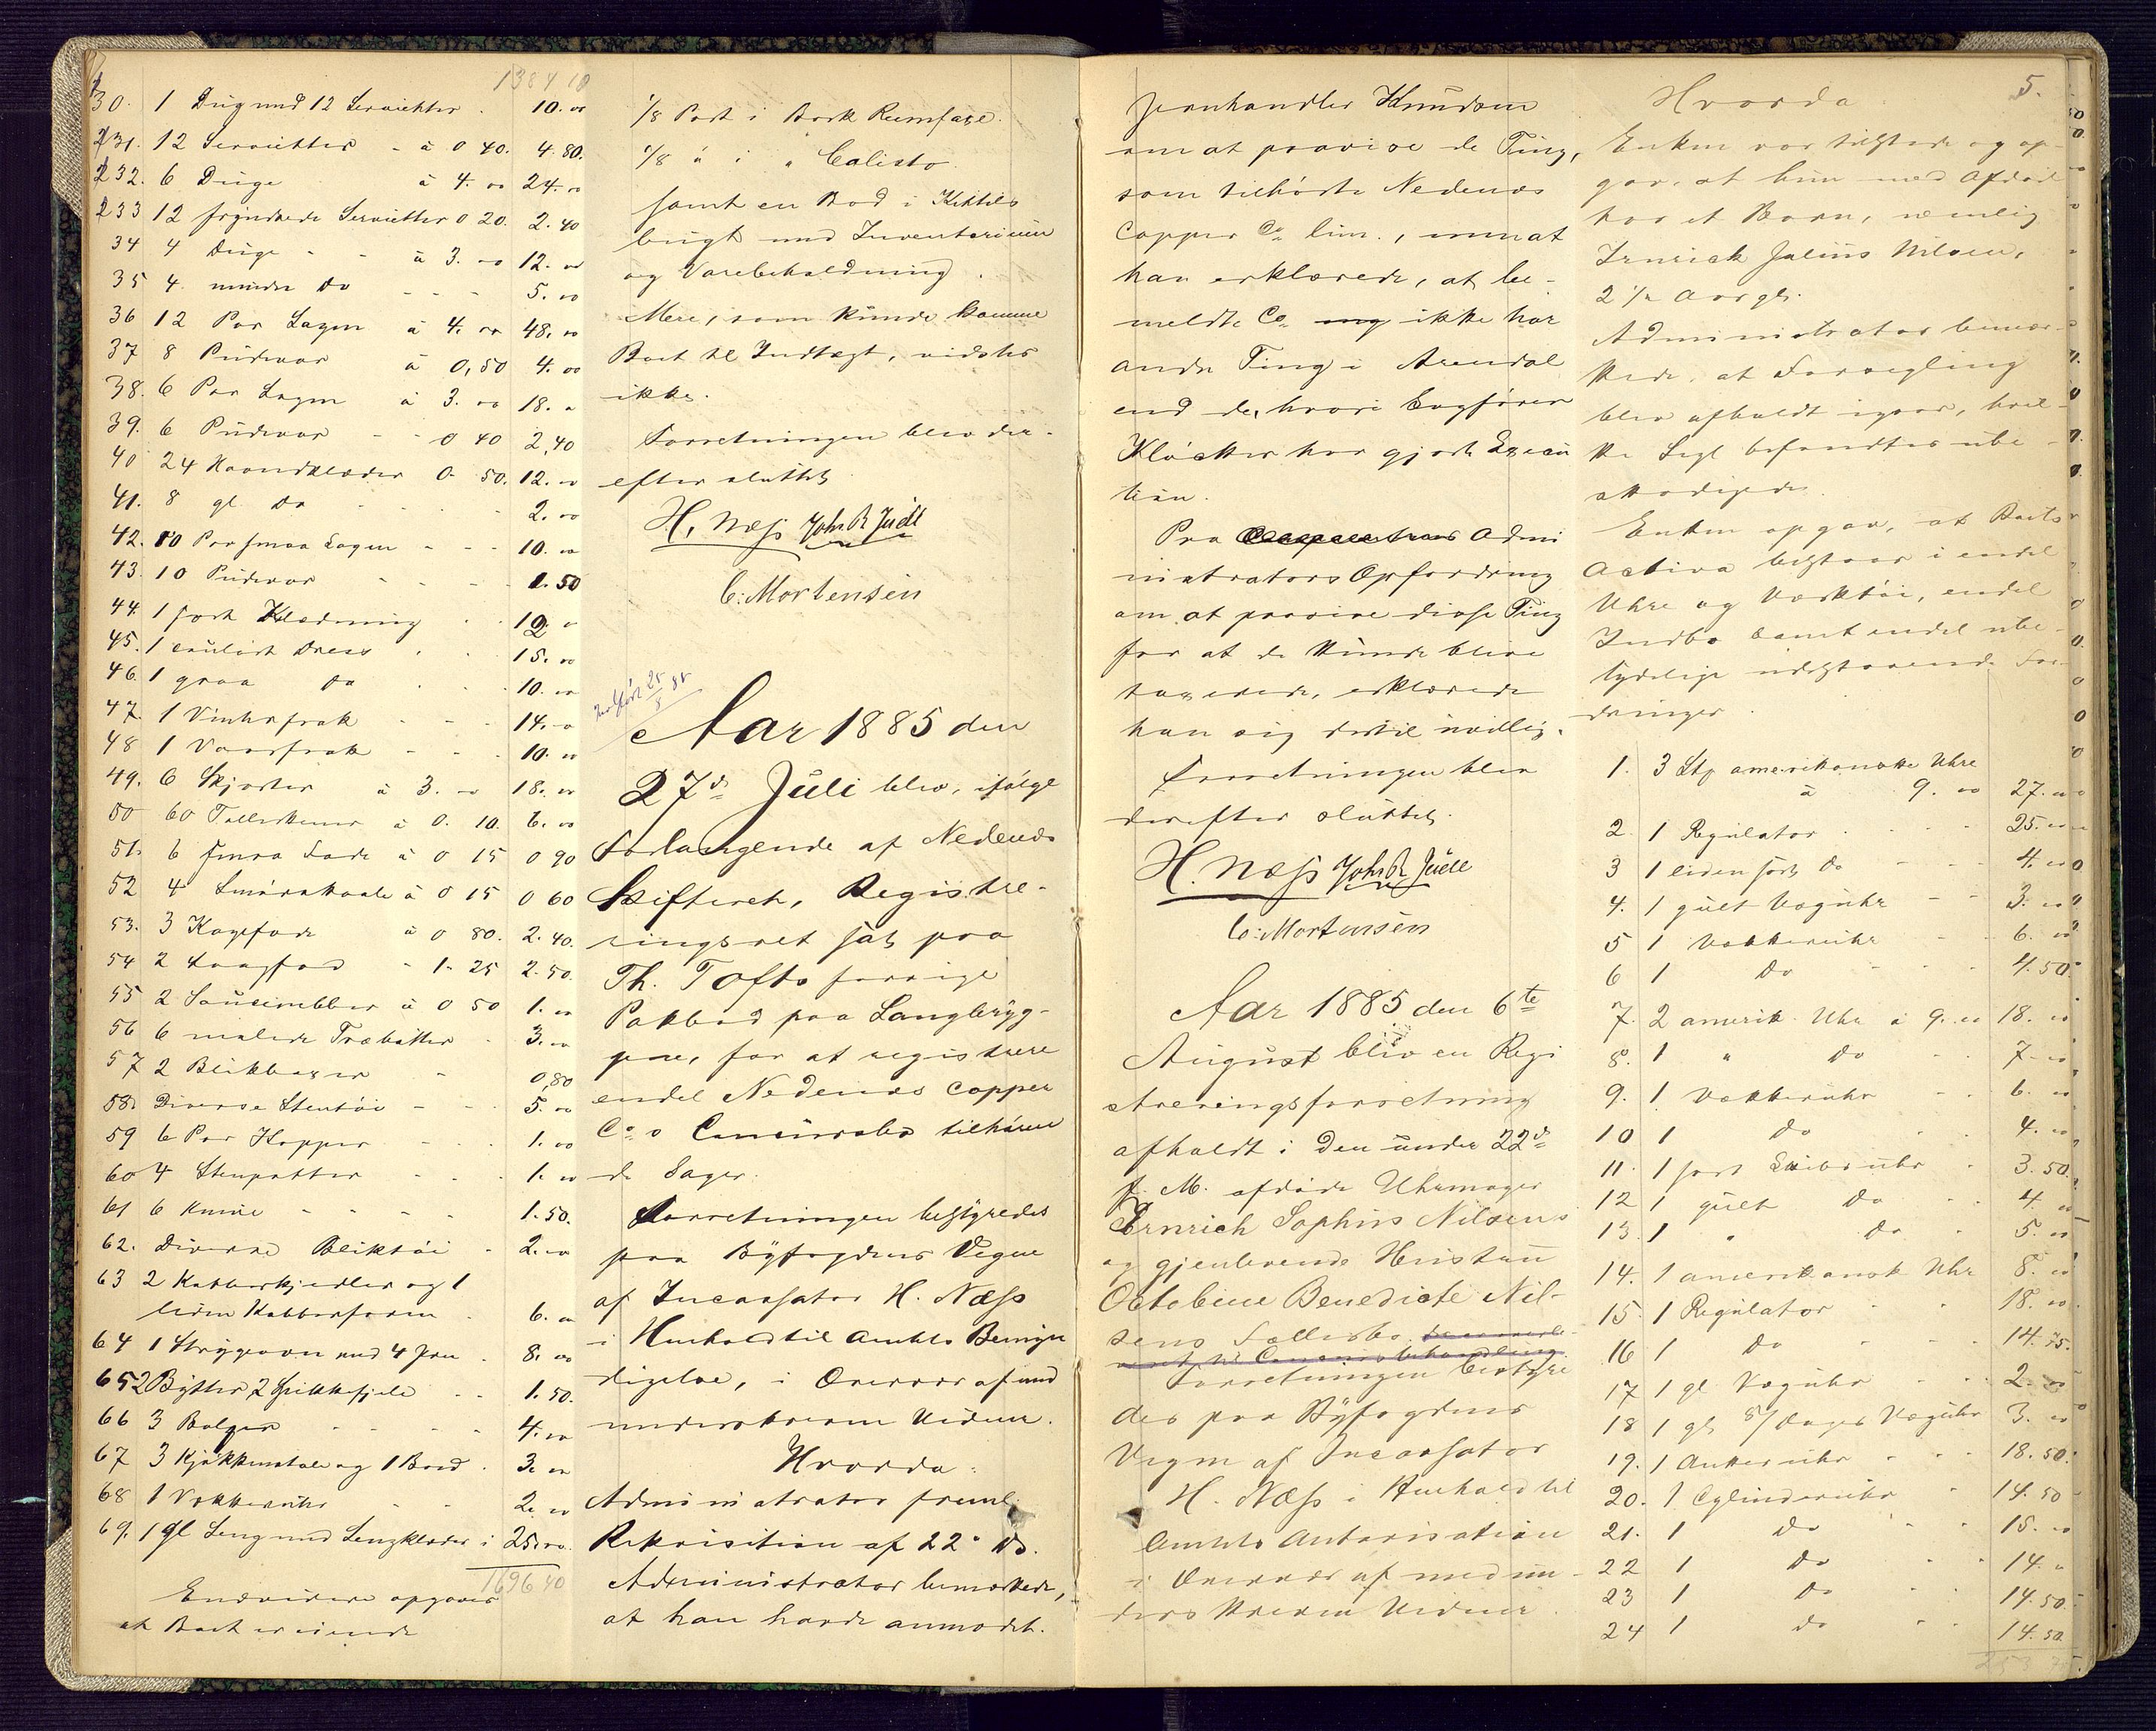 1384 10
30. 1 Dug med 12 Servietter . 10. 00
231. 12 Servietter - à 0 40. 4. 80.
232. 6 Duge à 4. 00 24. 00
233 12 fryndsede Servietter 0 20. 2. 40
34 4 Duge - - à 3. 00 12. 00
35 4 mindre Do - - - 5. 00
36 12 Par Lagen à 4. 00 48. 00
37 8 Pudevar à 0,50 4. 00
38. 6 Par Lagen à 3. 00 18. 00
39. 6 Pudevar - - 0 40 2,40
40 24 Haandklæder 0. 50. 12. 00
41. 8 gl. Do - - - - 2. 00
42. 10 Par smaa Lagen - - - 10. 00
43. 10 Pudevar - - - - 1. 50
44. 1 sort Klædning . . 12. 00
45. 1 couleurt Dress . . 15. 00
46. 1 graa Do . . . 10. 00
47. 1 Vinterfrak - - - 14. 00
48 1 Vaarfrak - - - 10. 00
49. 6 Skjorter à 3. 00 18. 00
50 60 Tallerkener à 0. 10. 6. 00
51. 6 smaa Fade à 0 15 0 90
52 4 Smørskaale à 0 15 0 60
53. 3 Kagefade à 0 80. 2. 40.
54 2 Langfad - 1. 25 2. 50.
55 2 Saucenebber à 0 50 1. 00
56 6 malede Træbøtter - 3. 00
57 2 Blikbaser - 0,80
58. Diverse Stentøi - - 5. 00
59 6 Par Kopper - - - 1. 00
60 4 Stenpotter - - - 1. 00
61 6 Knive - - - - 1. 50.
62. Diverse Bliktøi - 2. 00
63 2 Kobberkjedler og 1
liden Kobberform . 6. 00
64 1 Strygeovn med 4 Jern . 8. 00
65 2 Bytter, 2 Spikkefjele - - 1. 50.
66 3 Baljer - - - - 4. 00
67 3 Kjøkkenstole og 1 Bord . 3. 00
68 1 Vækkeruhr - - - 2. 00
69. 1 gl Seng med Sengklæder i 25. 00
1696 40
Endvidere opgaves
at Boet er eiende
1/8 Part i Bark Rumfare.
1/8 " i " Calisto
samt en Bod i Kittels
bugt med Inventarium
og Varebeholdning.
Mere, som kunde komme
Boet til Indtægt, vidstes
ikke.
Forretningen blev der-
efter sluttet
H. Næss Johs. B. Juell
C: Mortensen
25/8 85
Aar 1885 den
27de Juli blev, ifølge
Forlangende af Nedenes
Skifteret, Registre-
ringsret sat paa
Th. Tofts forrige
Pakbod paa Langbryg-
gen, for at registrere
endel Nedenes copper
Co.s Concursbo tilhøren
de Sager.
Forretningen bestyredes
paa Byfogdens Vegne
af Incassator H. Næss
i Henhold til Amtets Bemyn
digelse, i Overvær af med
underskrevne Vidner.
Hvorda:
Administrator freml.
Rekvisition af 22 ds.
Administrator bemærkede,
at han havde anmodet.
Jernhandler Knudsen
om at paavise de Ting,
som tilhørte Nedenes
Copper Co lim., men at
han erklærede, at be-
meldte Co. ikke har
andre Ting i Arendal
end de, hvori Sagfører
Kløcker har gjort Execu
tion.
Paa Admi
nistrators Opfordring
om at paavise disse Ting
for at de kunde blive
taxerede, erklærede
han sig dertil uvillig.
Forretningen blev
derefter sluttet.
H. Næss Johs. B. Juell
C: Mortensen
Aar 1885 den 6te
August blev en Regi
streringsforretning
afholdt i Den under 22de
f. M. afdøde Uhrmager
Ernrich Sophus Nilsens
og gjenlevende Hustru
Octobine Benedicte Nil-
sens Fællesbo.
Forretningen besty​re
des paa Byfogdens
Vegne af Incassator
H. Næss i Henhold til
Amtets Autorisation
i Overvær af medun-
derskrevne Vidner.
Hvorda
5.
Enken var tilstede og op-
gav, at hun med Afdøde
har et Barn, nemlig
Ernrick Julius Nilsen,
2 1/2 Aar gl.
Administrator bemær-
kede, at Forsegling
blev afholdt igaar, hvil-
ke Segl befandtes ube-
skadigede.
Enken opgav, at Boets
Activa bestaar i endel
Uhre og Værktøi, endel
Indbo samt endel ube-
tydelige udestaaende For-
dringer.
1. 3 Stk amerikanske Uhre
à 9. 00 27. 00
2. 1 Regulator . . . 25. 00
3 1 liden sort Do - - - 4. 00
4. 1 gult Væguhr - - 3. 00
5 1 Vækkeruhr - - 6. 00
6 1 Do - - - 4. 50
7. 2 amerik. Uhr à 9. 00 18. 00
8. 1 " Do - - 7. 00
9. 1 Vækkeruhr - - 6. 00
10 1 Do - - 4. 00
11. 1 sort Skibsuhr . 3. 50
12 1 gult Do . . 4. 00
13. 1 " Do . 5. 00
14. 1 amerikansk Uhr 8. 00
15. 1 Regulator . . 18. 00
16 1 Do - - - 14. 75.
17 1 gl. Væguhr - - 2. 00
18 1 gl. 8/Dages Væguhr 3. 00
19. 1 Ankeruhr - - 18. 50.
20. 1 Cylinderuhr - 14. 50
21. 1 Do . . 15. 00
22 1 Do . . 14. 00
23 1 Do . . 14. 50.
24 1 Do . . 14. 50